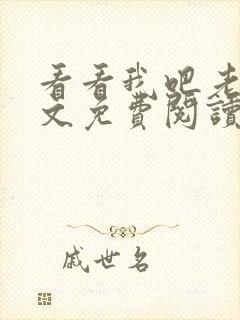 看看我吧老
文免費閱讀
戚世名